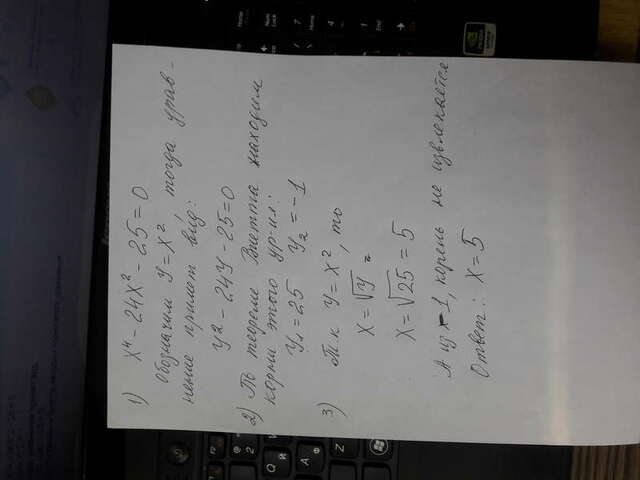 1) x⁴ - 24x² - 25 = 0
Обозначим y = x², тогда урав-
нение примет вид:
y² - 24y - 25 = 0
2) По теореме Виетта находим
корни этого ур-ия:
y₁ = 25 y₂ = -1
3) Т.к y = x², то
x = √y =
x = √25 = 5
А из -1, корень не извлекается
Ответ: x = 5